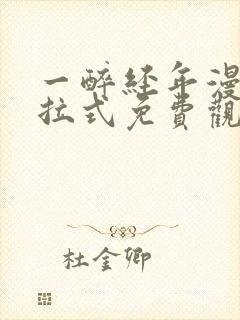 一醉经年漫
拉式免費觀
杜金卿